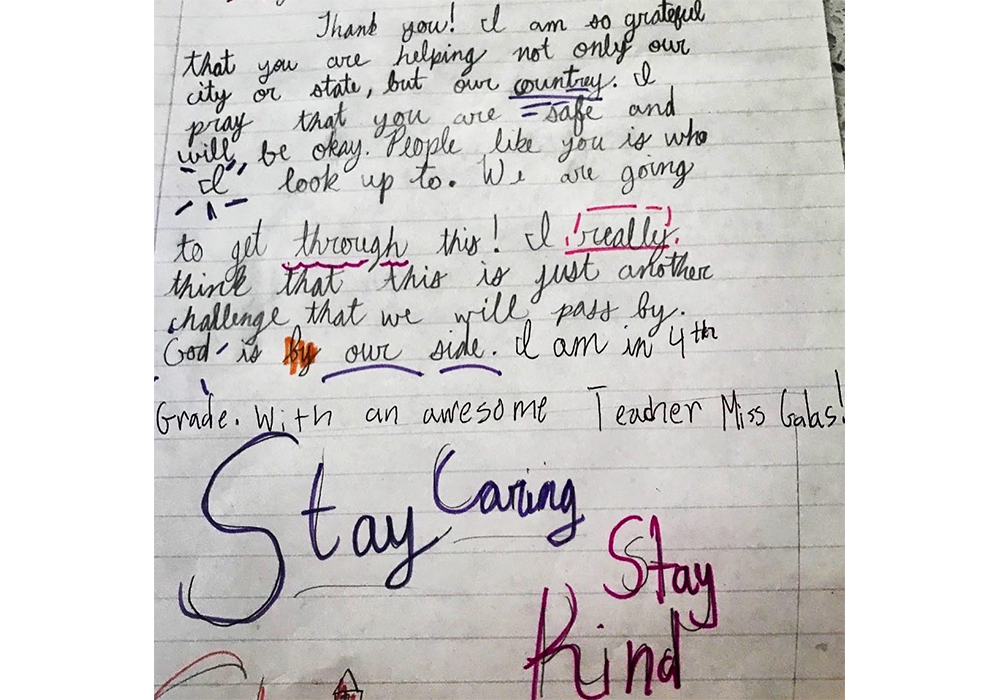 Thank you! I am so grateful
that you are helping not only our
city or state, but our country. I
pray that you are safe and
will be okay. People like you is who
I look up to. We are going
to get through this! I really
think that this is just another
challenge that we will pass by.
God is by our side. I am in 4th
Grade. With an awesome Teacher Miss Gabas!
Stay Caring
Stay
Kind